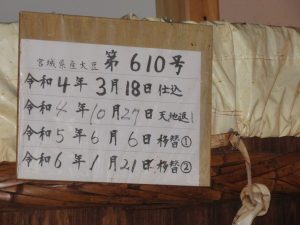 宮城県産大豆 第610号
令和4年3月18日仕込
令和4年10月27日天地返し
令和5年6月6日移替①
令和6年1月21日移替②